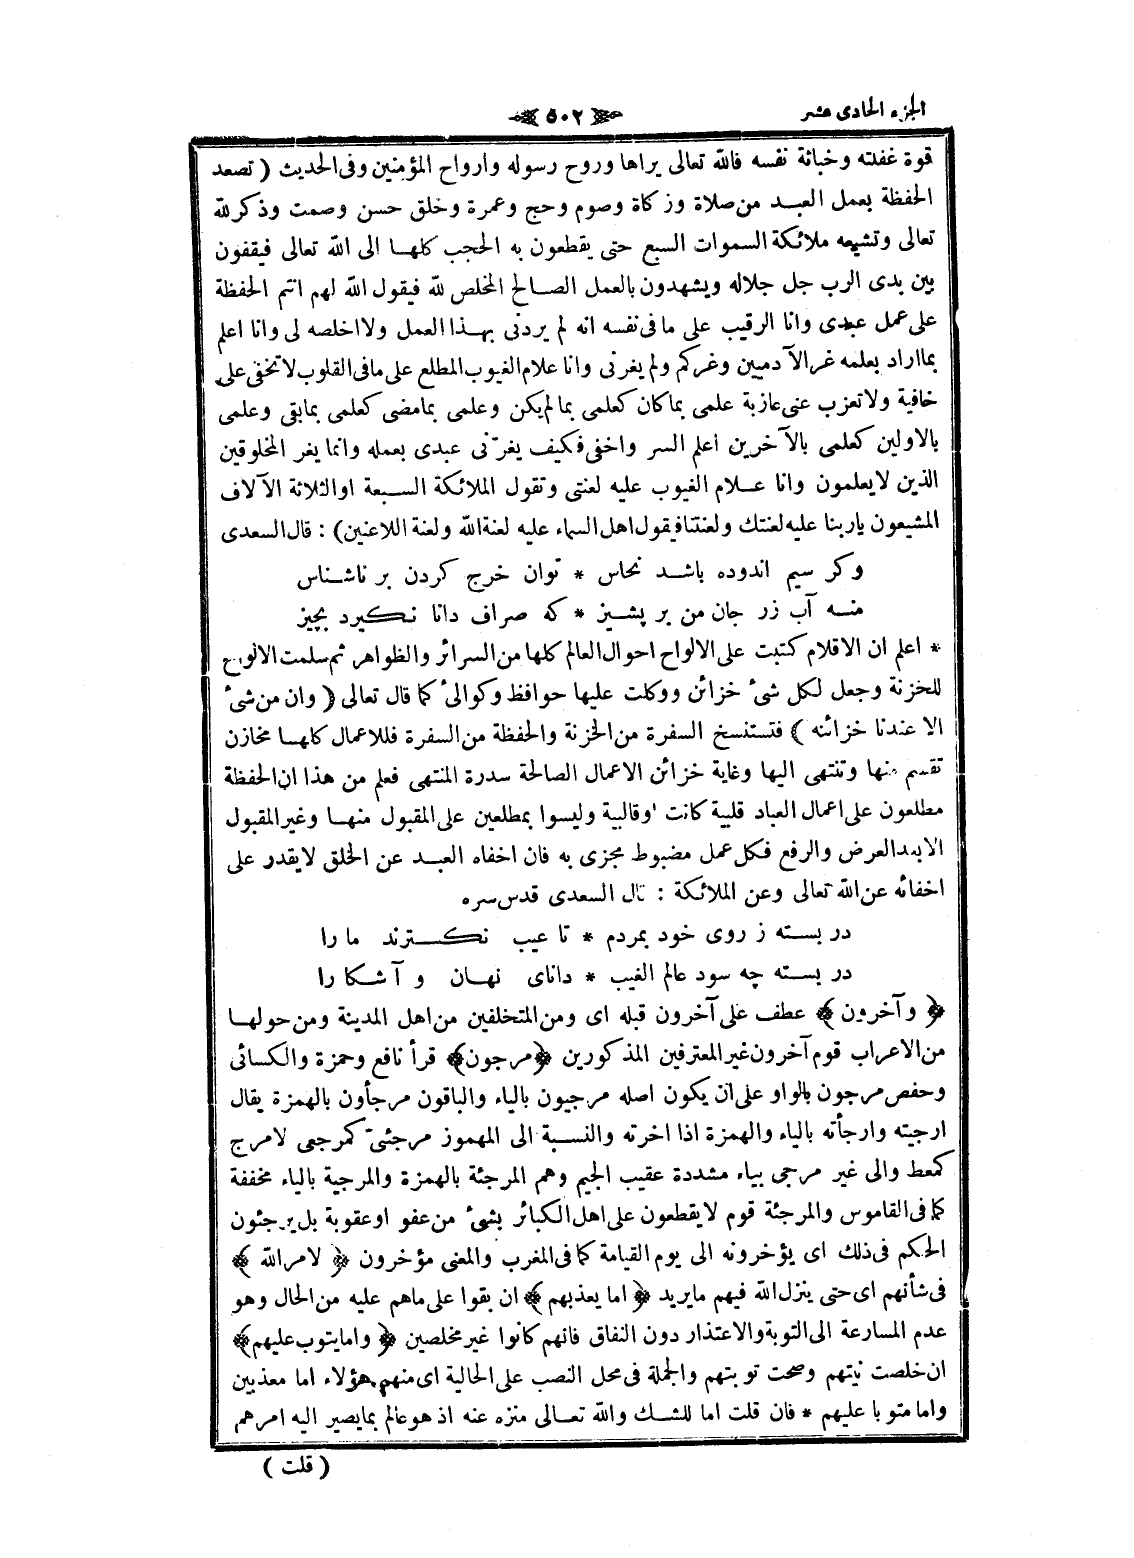 الجزء الحادى عشر
٥٠٢
قوة غفلته وخباثة نفسه فالله تعالى يراها وروح رسوله وارواح المؤمنين وفى الحديث ( تصعد
الحفظة بعمل العبد من صلاة وزكاة وصوم وحج وعمرة وخلق حسن وصمت وذكر لله
تعالى وتشيعه ملائكة السموات السبع حتى يقطعون به الحجب كلها الى الله تعالى فيقفون
بين يدى الرب جل جلاله ويشهدون بالعمل الصالح المخلص لله فيقول الله لهم انتم الحفظة
على عمل عبدى وانا الرقيب على ما فى نفسه انه لم يردنى بهذا العمل ولا اخلصه لى وانا اعلم
بما اراد بعلمه غر الآدميين وغركم ولم يغرنى وانا علام الغيوب المطلع على ما فى القلوب لا تخفى على
خافية ولا تعزب عنى عازبة علمى بما كان كعلمى بما لم يكن وعلمى بما مضى كعلمى بما بقى وعلمى
بالاولين كعلمى بالآخرين اعلم السر واخفى فكيف يغرّنى عبدى بعمله وانما يغر المخلوقين
الذين لا يعلمون وانا علام الغيوب عليه لعنتى وتقول الملائكة السبعة او الثلاثة الآلاف
المشيعون ياربنا عليه لعنتك ولعنتنا فيقول اهل السماء عليه لعنة الله ولعنة اللاعنين ) : قال السعدى
وكر سيم اندوده باشد نحاس * توان خرج كردن بر ناشناس
منه آب زر جان من بر پشيز * كه صراف دانا نكيرد بچيز
* اعلم ان الاقلام كتبت على الالواح احوال العالم كلها من السرائر والظواهر ثم سلمت الالواح
للخزنة وجعل لكل شئ خزائن ووكلت عليها حوافظ وكوالئ كما قال تعالى ( وان من شئ
الا عندنا خزائنه ) فتستنسخ السفرة من الخزنة والحفظة من السفرة فللاعمال كلها مخازن
تقسم منها وتنتهى اليها وغاية خزائن الاعمال الصالحة سدرة المنتهى فعلم من هذا ان الحفظة
مطلعون على اعمال العباد قلبية كانت او قالبية وليسوا بمطلعين على المقبول منها وغير المقبول
الا بعد العرض والرفع فكل عمل مضبوط مجزى به فان اخفاه العبد عن الخلق لا يقدر على
اخفائه عن الله تعالى وعن الملائكة : قال السعدى قدس سره
در بسته ز روى خود بمردم * تا عيب نكسترند ما را
در بسته چه سود عالم الغيب * داناى نهان و آشكا را
﴿ وآخرون ﴾ عطف على آخرون قبله اى ومن المتخلفين من اهل المدينة ومن حولها
من الاعراب قوم آخرون غير المعترفين المذكورين ﴿ مرجون ﴾ قرأ نافع وحمزة والكسائى
وحفص مرجون بالواو على ان يكون اصله مرجيون بالياء والباقون مرجأون بالهمزة يقال
ارجيته وارجأته بالياء والهمزة اذا اخرته والنسبة الى المهموز مرجئىّ كمرجعى لا مرج
كمعط والى غير مرجى بياء مشددة عقيب الجيم وهم المرجئة بالهمزة والمرجية بالياء مخففة
كما فى القاموس والمرجئة قوم لا يقطعون على اهل الكبائر بشئ من عفو او عقوبة بل يرجئون
الحكم فى ذلك اى يؤخرونه الى يوم القيامة كما فى المغرب والمعنى مؤخرون ﴿ لامر الله ﴾
فى شأنهم اى حتى ينزل الله فيهم ما يريد ﴿ اما يعذبهم ﴾ ان بقوا على ما هم عليه من الحال وهو
عدم المسارعة الى التوبة والاعتذار دون النفاق فانهم كانوا غير مخلصين ﴿ واما يتوب عليهم ﴾
ان خلصت نيتهم وصحت توبتهم والجملة فى محل النصب على الحالية اى منهم هؤلاء اما معذبين
واما متوبا عليهم * فان قلت اما للشك والله تعالى منزه عنه اذ هو عالم بما يصير اليه امرهم
( قلت )